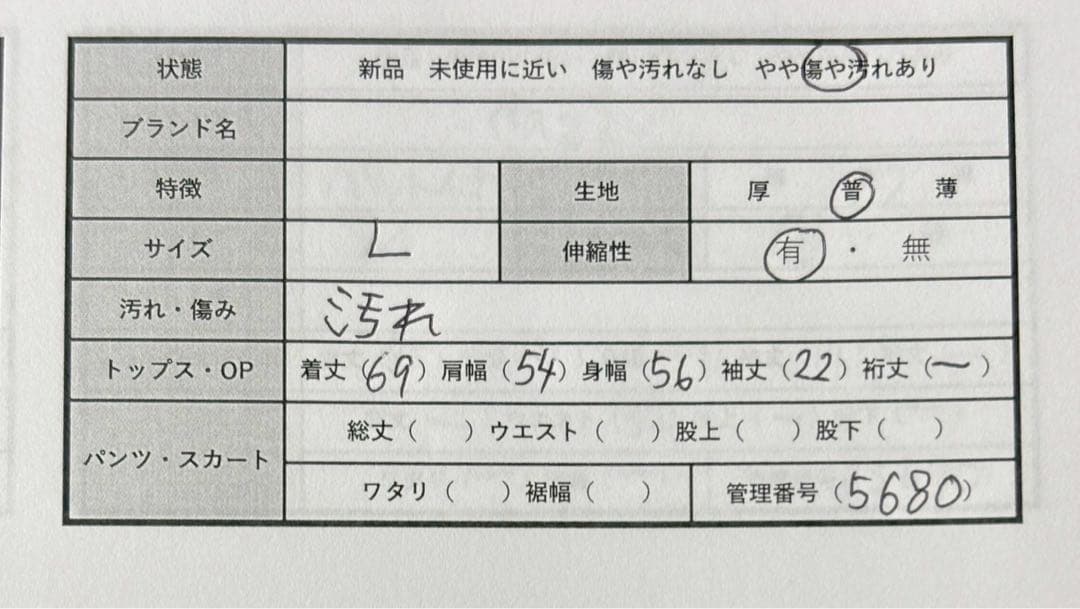 状態 新品 未使用に近い 傷や汚れなし やや傷や汚れあり
ブランド名
特徴 生地 厚 普 薄
サイズ L 伸縮性 有 ・ 無
汚れ・傷み 汚れ
トップス・OP 着丈（69）肩幅（54）身幅（56）袖丈（22）裄丈（ー）
パンツ・スカート 総丈（ ）ウエスト（ ）股上（ ）股下（ ）
ワタリ（ ）裾幅（ ） 管理番号（5680）